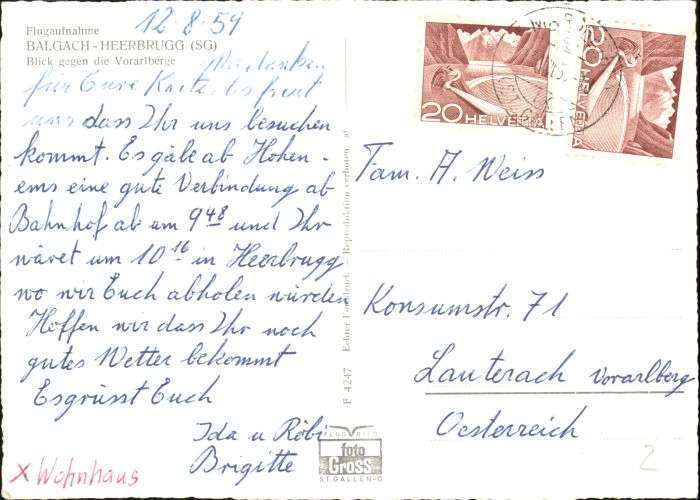 Flugaufnahme
BALGACH - HEERBRUGG (SG)
Blick gegen die Vorarlberge
12·8·59
Wir danken
für Eure Karte. Es freut
uns dass Ihr uns besuchen
kommt. Es gäbe ab Hohen-
ems eine gute Verbindung ab
Bahnhof ab am 9 48 und Ihr
wäret um 10 16 in Heerbrugg
wo wir Euch abholen würden
Hoffen wir dass Ihr noch
gutes Wetter bekommt
Es grüsst Euch
Ida u Röbi
Brigitte
x Wohnhaus
F 4247 Echter Fotodruck Reproduktion verboten
FLUGBILD
foto
Gross
ST. GALLEN-O
20 HELVETIA
20 HELVETIA
Fam. A. Weiss
Konsumstr. 71
Lauterach Vorarlberg
Oesterreich
2